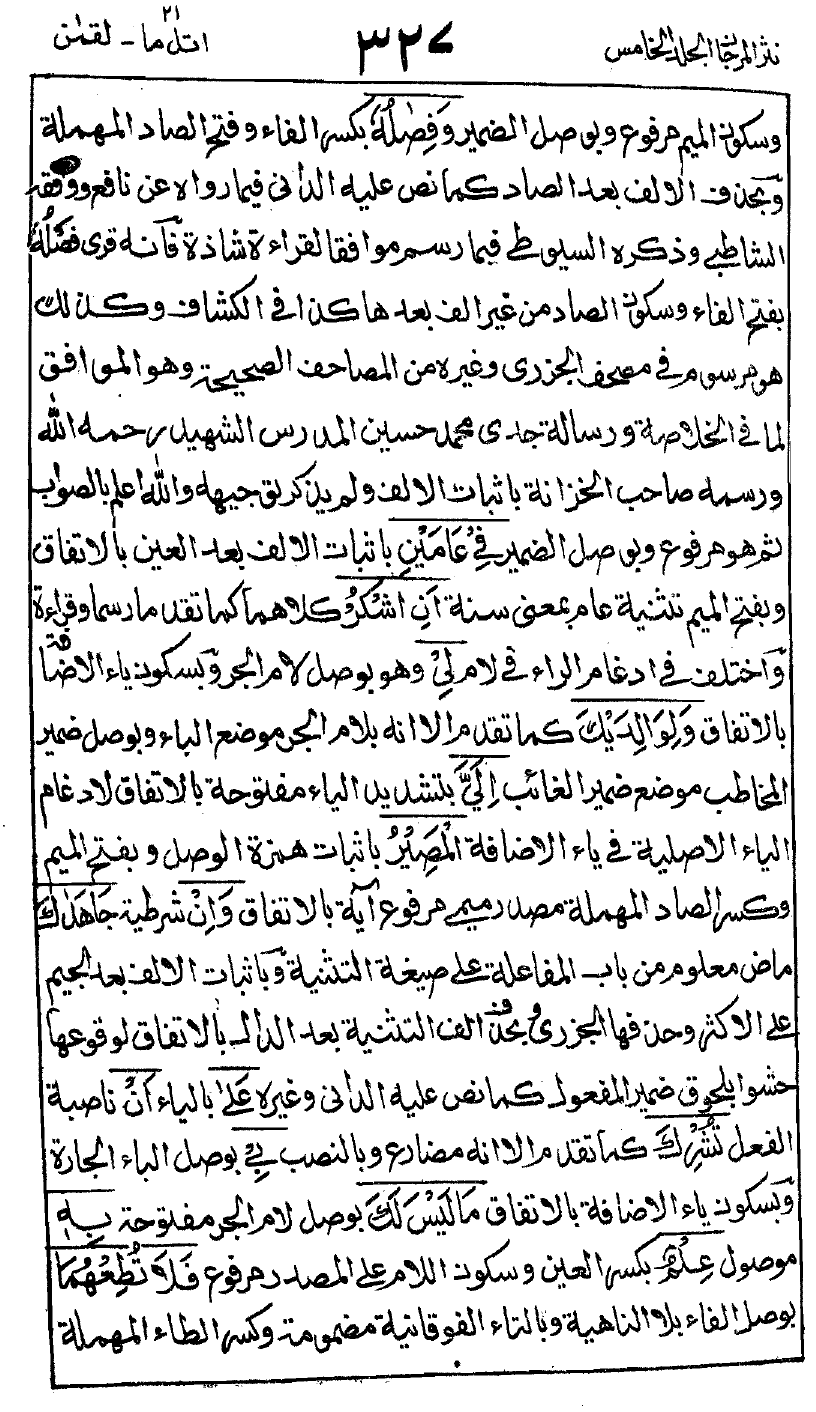 نثر المرجان الجلد الخامس ٣٢٧ اتل ما ٢١ - لقمٰن
وسكون الميم مرفوع وبوصل الضمير وَفِصٰلُهٗ بكسر الفاء وفتح الصاد المهملة
وبحذف الالف بعد الصاد كما نص عليه الدانى فيما رواه عن نافع ووافقه
الشاطبي وذكره السيوطي فيما رسم موافقا لقراءة شاذة فانه قرى فَصْلُهٗ
بفتح الفاء وسكون الصاد من غير الف بعدها كذا فى الكشاف وكذلك
هو مرسوم فى مصحف الجزرى وغيره من المصاحف الصحيحة وهو الموافق
لما فى الخلاصة ورسالة جدى محمد حسين المدرس الشهيد رحمه الله
ورسمه صاحب الخزانة باثبات الالف ولم يذكر توجيهه والله اعلم بالصواب
ثم هو مرفوع وبوصل الضمير فِيْ عَامَيْنِ باثبات الالف بعد العين بالاتفاق
وبفتح الميم تثنية عام بمعنى سنة اَنِ اشْكُرْ كلاهما كما تقدما رسما وقراءة
واختلف فى ادغام الراء فى لام لِيْ وهو بوصل لام الجر وبسكون ياء الاضافة
بالاتفاق وَلِوَالِدَيْكَ كما تقدم الا انه بلام الجر موضع الباء وبوصل ضمير
المخاطب موضع ضمير الغائب اِلَيَّ بتشديد الياء مفتوحة بالاتفاق لادغام
الياء الاصلية فى ياء الاضافة الْمَصِيْرُ باثبات همزة الوصل وبفتح الميم
وكسر الصاد المهملة مصدر ميمي مرفوع اٰية بالاتفاق وَاِنْ شرطية جَاهَدٰكَ
ماض معلوم من باب المفاعلة على صيغة التثنية وباثبات الالف بعد الجيم
على الاكثر وحذفها الجزرى وبحذف الف التثنية بعد الدال بالاتفاق لوقوعها
حشوا بلحوق ضمير المفعول كما نص عليه الدانى وغيره عَلٰى بالياء اَنْ ناصبة
الفعل تُشْرِكَ كما تقدم الا انه مضارع وبالنصب بِيْ بوصل الباء الجارة
وبسكون ياء الاضافة بالاتفاق مَا لَيْسَ لَكَ بوصل لام الجر مفتوحة بِهٖ
موصول عِلْمٌ بكسر العين وسكون اللام على المصدر مرفوع فَلَا تُطِعْهُمَا
بوصل الفاء بلا الناهية وبالتاء الفوقانية مضمومة وكسر الطاء المهملة